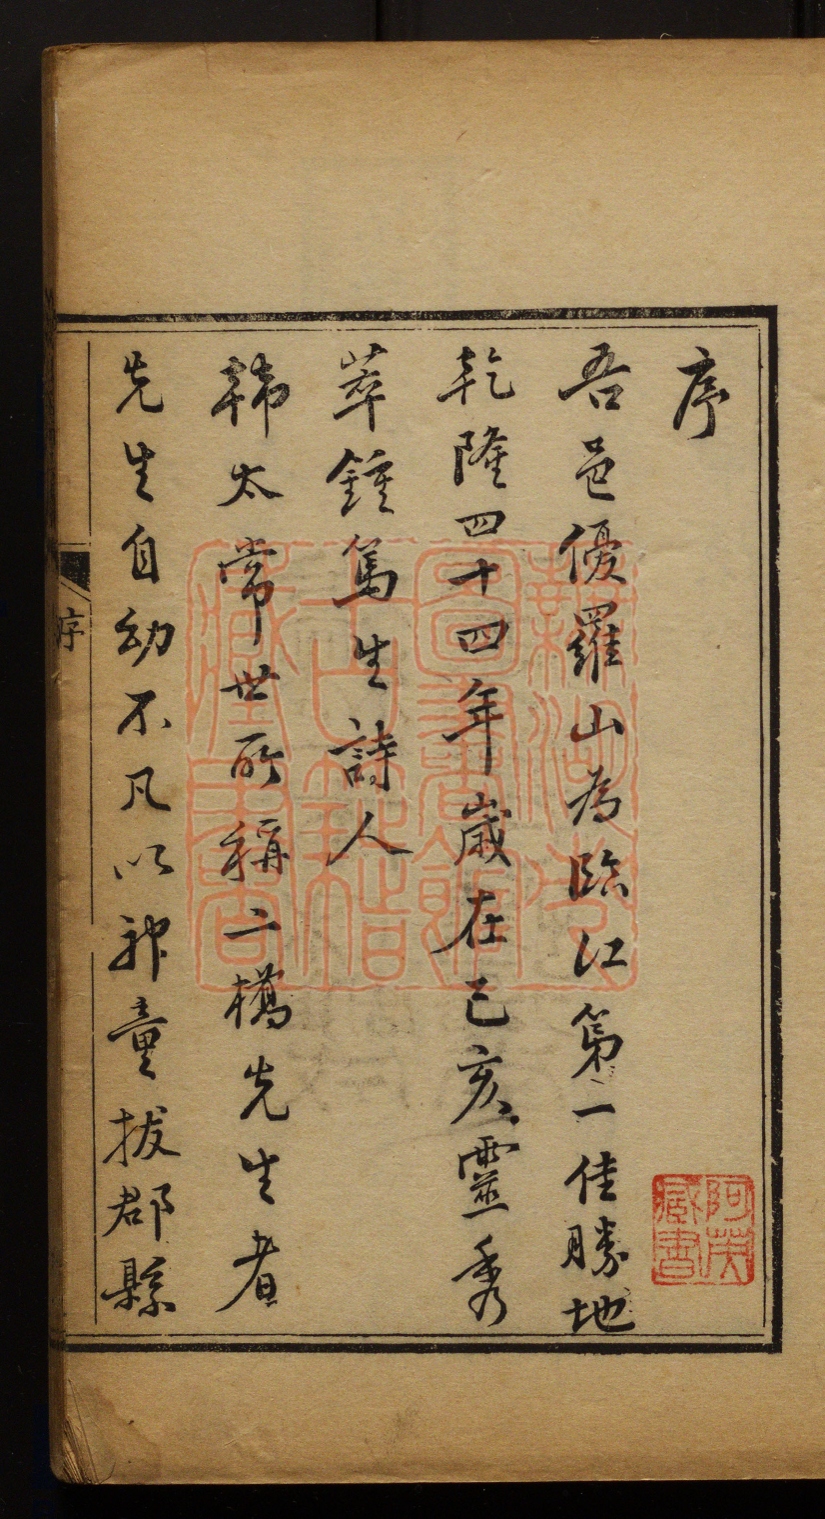 序
吾邑優羅山為臨江第一佳勝地
乾隆四十四年歲在己亥靈秀
萃鍾篤生詩人
韓太常世所稱二樵先生者
先生自幼不凡以神童拔郡縣
序
蕪湖市
圖書館
古籍
藏書
阿英
藏書